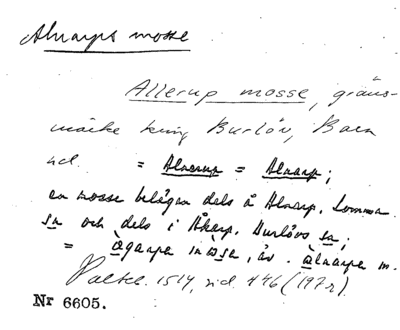 Alnarps mosse
Allerup mosse, gräns-
märke kring Burlöv, Bara
hd. = Alnarp = Alnarp;
en mosse belägen dels å Alnarp, Lomma
sn och dels i Åkarp, Burlövs sn;
= àgaapa mòsa, äv. àlnaapa m.
1514, sid. 446 (197r).
Nr 6605.